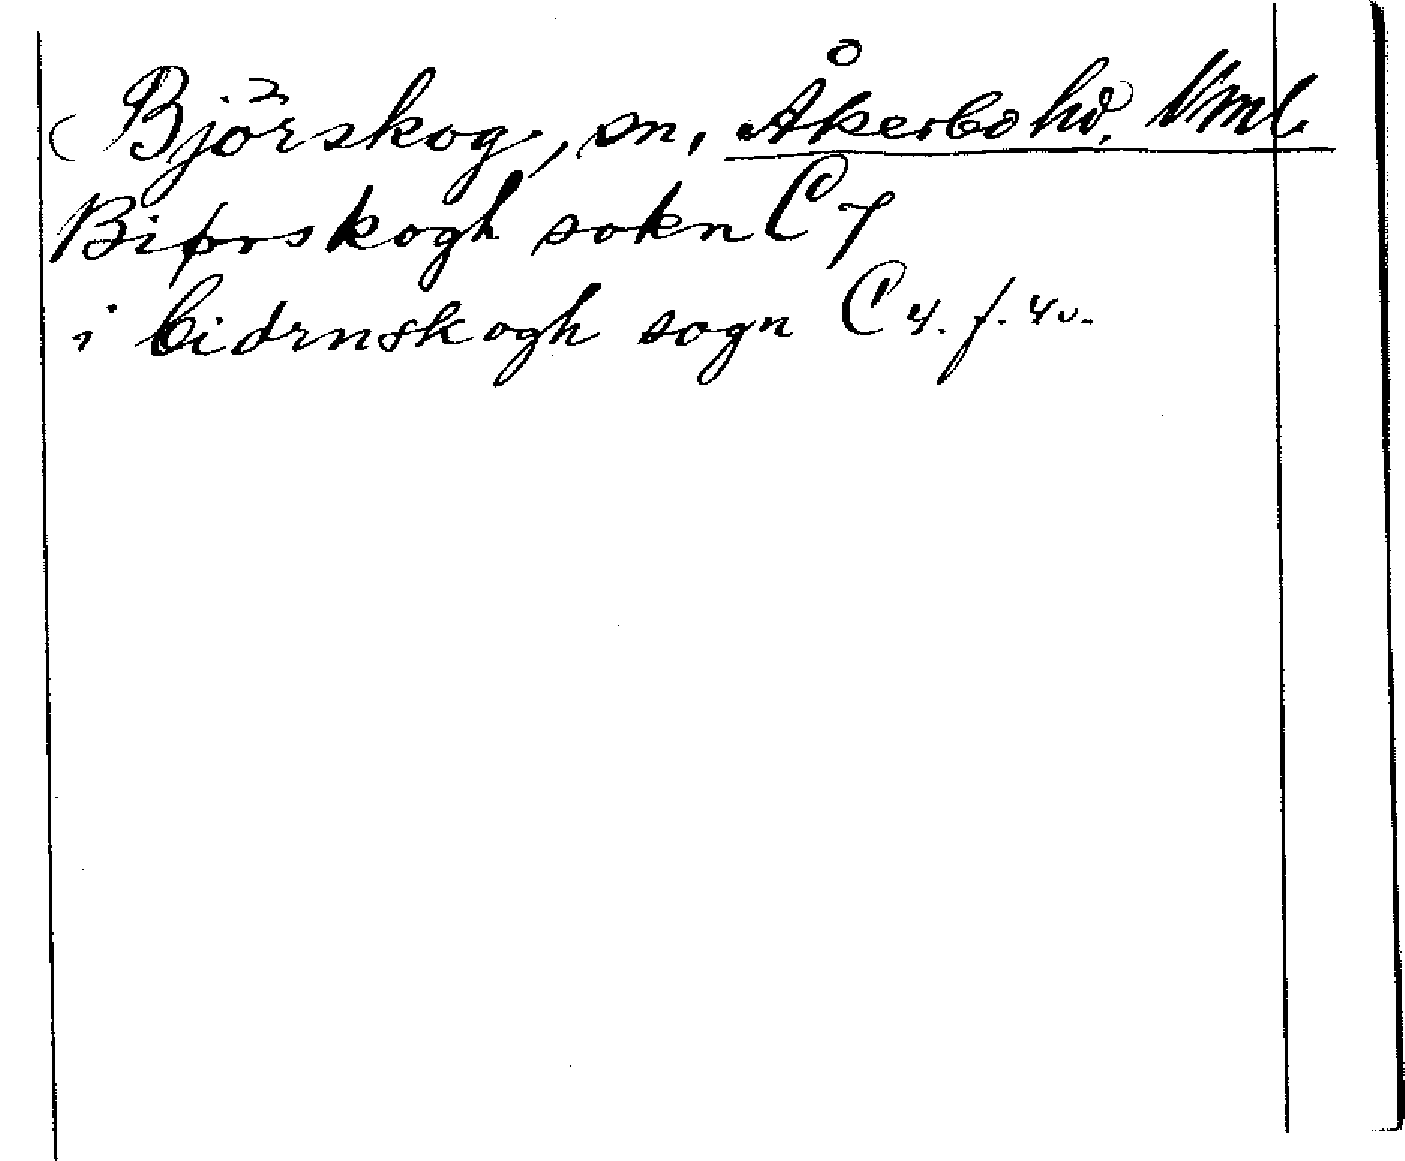 Björskog, sn, Åkerbo hd. Vml.
Biørskogh sokn C 7
i biörnskogh sogn C 4. f. 4v.